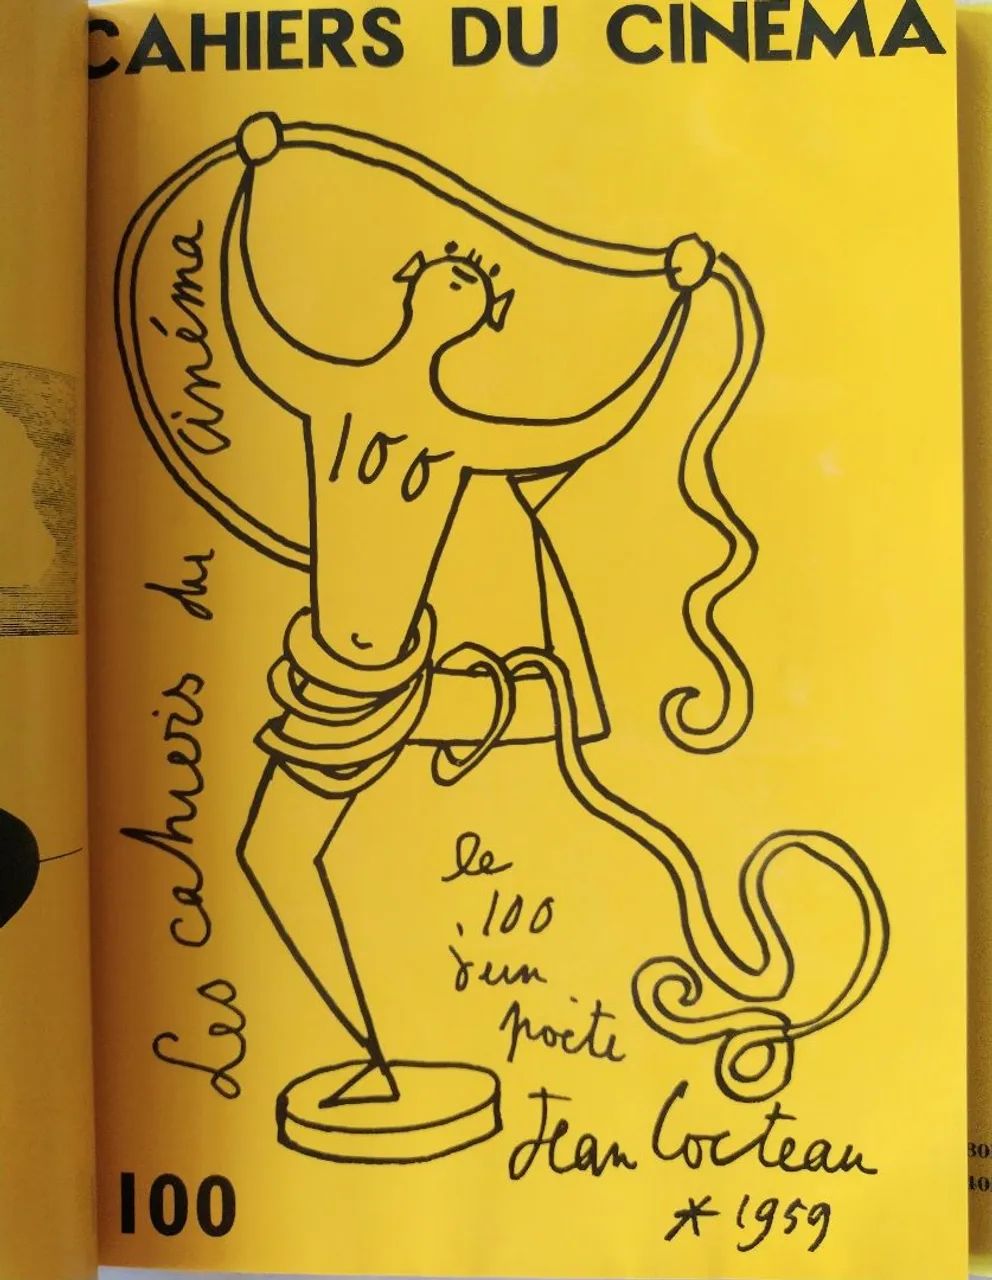 CAHIERS DU CINÉMA
Les cahiers du cinéma
100
le
100
d'un
poète
Jean Cocteau
* 1959
100